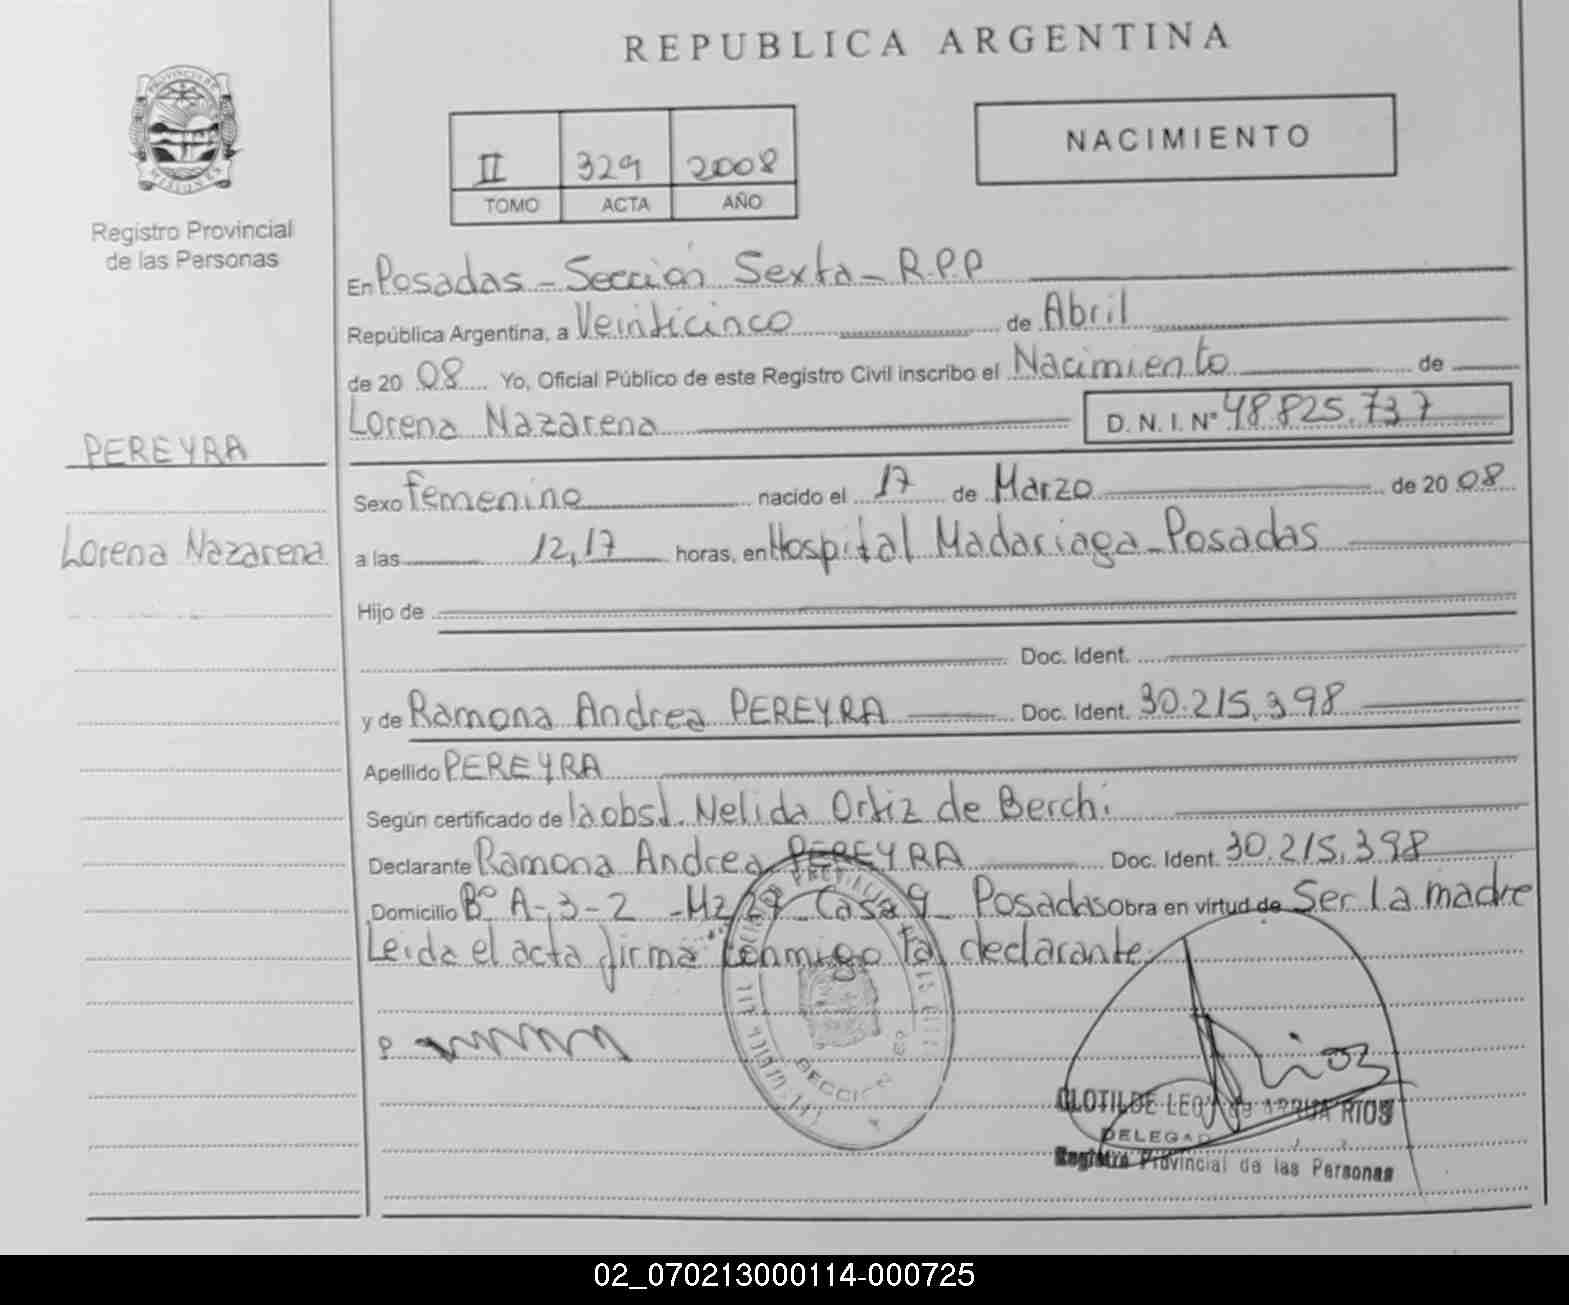 REPUBLICA ARGENTINA
PROVINCIA DE
MISIONES
Registro Provincial
de las Personas
II 329 2008
TOMO ACTA AÑO
NACIMIENTO
En Posadas - Sección Sexta - R.P.P
República Argentina, a Veinticinco de Abril
de 20 08 Yo, Oficial Público de este Registro Civil inscribo el Nacimiento de
Lorena Nazarena D. N. I. Nº 48.825.737
PEREYRA
Sexo femenino nacido el 17 de Marzo de 20 08
Lorena Nazarena
a las 12,17 horas, en Hospital Madariaga - Posadas
Hijo de
Doc. Ident.
y de Ramona Andrea PEREYRA Doc. Ident. 30.215.398
Apellido PEREYRA
Según certificado de la obst. Nelida Ortiz de Berchi
Declarante Ramona Andrea PEREYRA Doc. Ident. 30.215.398
Domicilio Bº A-3-2 - Mz 27 - Casa 9 - Posadas obra en virtud de Ser la madre
Leida el acta firma conmigo la declarante
SECCION
Rios
CLOTILDE LEON de ARRUA RIOS
DELEGADA
Registro Provincial de las Personas
02_070213000114-000725